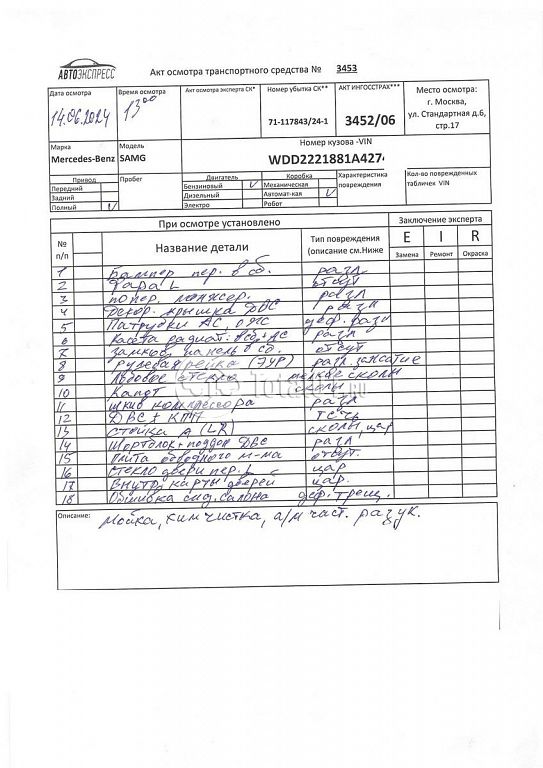 АВТОЭКСПРЕСС
Акт осмотра транспортного средства № 3453
Дата осмотра
14.06.2024
Время осмотра
13 00
Акт осмотра эксперта СК*
Номер убытка СК**
71-117843/24-1
АКТ ИНГОССТРАХ***
3452/06
Место осмотра:
г. Москва,
ул. Стандартная д.6,
стр.17
Марка
Mercedes-Benz
Модель
SAMG
Номер кузова -VIN
WDD2221881A4274
Привод
Передний
Задний
Полный V
Пробег
Двигатель
Бензиновый V
Дизельный
Электро
Коробка
Механическая
Автомат-кая V
Робот
Характеристика
повреждения
Кол-во поврежденных
табличек VIN
При осмотре установлено
Заключение эксперта
№
п/п
Название детали
Тип повреждения
(описание см.Ниже
E I R
Замена Ремонт Окраска
1 Бампер пер. в сб. разл
2 Фара L отсут
3 попер. разл
4 Декор. крышка ДВС разл
5 Патрубки АС, ДВС деф. разл
6 Кассета радиат. в сб. АС разл
7 Замков. панель в сб. отсут
8 Рулевая рейка (ЭУР) разл
9 Лобовое стекло мелкие сколы
10 Капот сколы
11 шкив компрессора разл
12 ДВС + КПП течь
13 стойка А (LR) сколы, цар
14 поддон ДВС разл
15 отсут.
16 Стекло двери пер. L цар
17 Внутр. карты дверей цар.
18 Обшивка сид. салона деф. трещ.
Описание: Мойка, химчистка, а/м част. разук.